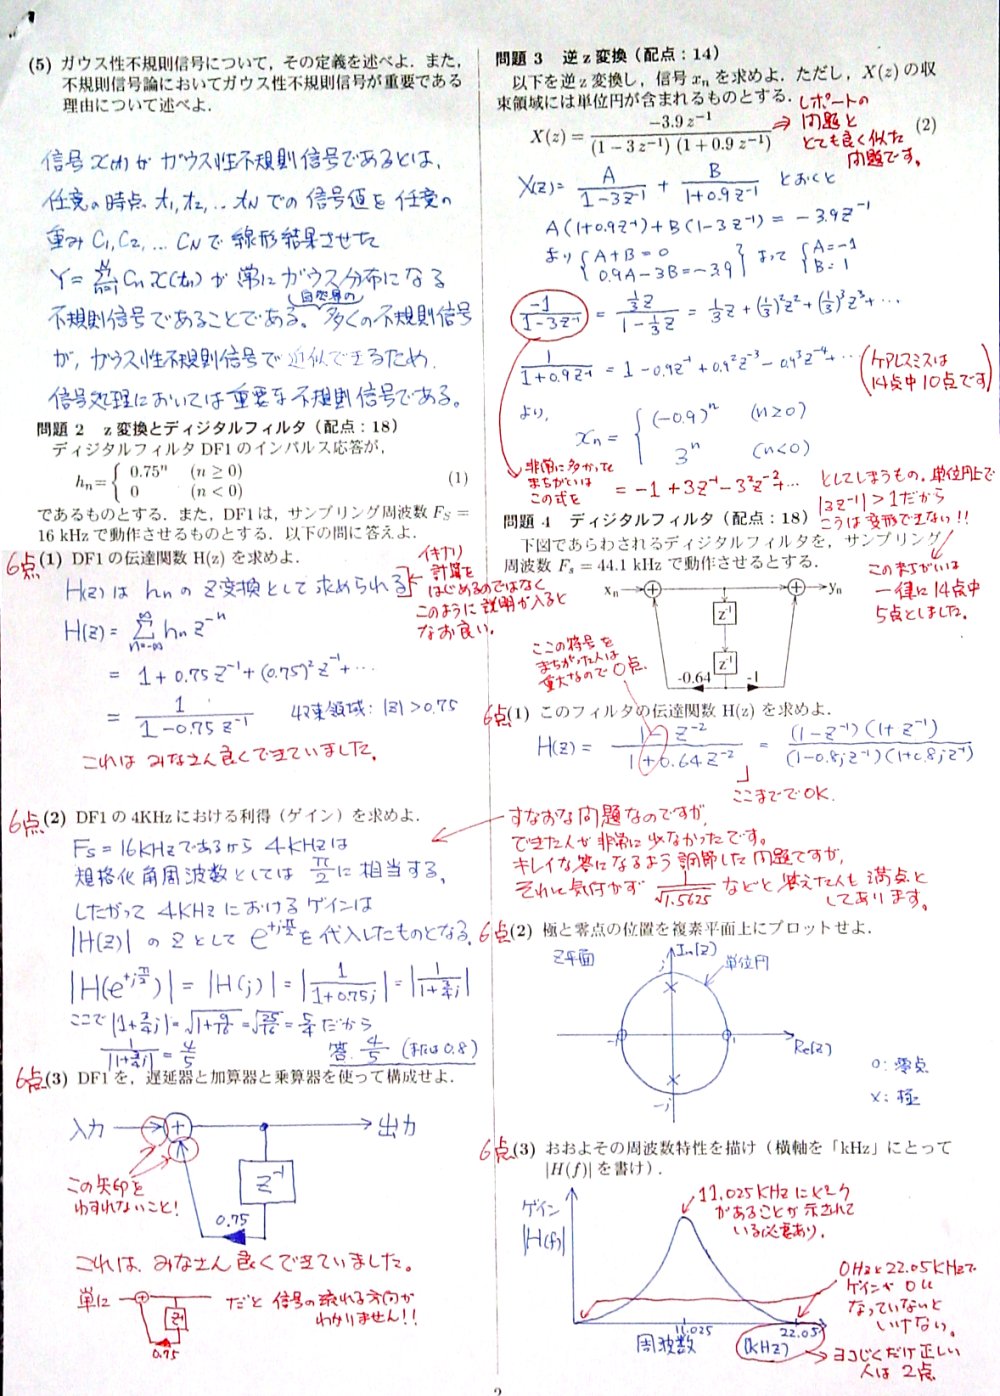 (5) ガウス性不規則信号について，その定義を述べよ．また，
不規則信号論においてガウス性不規則信号が重要である
理由について述べよ．
信号 x(t) が ガウス性不規則信号であるとは、
任意の時点 t1, t2, … tN での 信号値を 任意の
重み C1, C2, … CN で 線形結果させた
Y = Σ Cn x(tn) が 常に ガウス分布になる
不規則信号であることである。(自然界の)多くの不規則信号
が、ガウス性不規則信号で近似できるため
信号処理においては重要な不規則信号である。
問題 2　z 変換とディジタルフィルタ（配点：18）
ディジタルフィルタ DF1 のインパルス応答が，
hn = { 0.75ⁿ (n ≥ 0)
0 (n < 0) (1)
であるものとする．また，DF1 は，サンプリング周波数 FS =
16 kHz で動作させるものとする．以下の問に答えよ．
6点 (1) DF1 の伝達関数 H(z) を求めよ．
H(z) は hn の Z変換として求められる
イキナリ
計算を
はじめるのではなく
このように説明が入ると
なお良い。
H(z) = Σ hn z⁻ⁿ
= 1 + 0.75 z⁻¹ + (0.75)² z⁻² + …
= 1 / (1 − 0.75 z⁻¹)　収束領域: |z| > 0.75
これは みなさん良くできていました。
6点 (2) DF1 の 4KHz における利得（ゲイン）を求めよ．
Fs = 16KHz であるから 4KHz は
規格化角周波数としては π/2 に相当する。
したがって 4KHz におけるゲインは
|H(z)| の z として e^{+jπ/2} を代入したものとなる。
|H(e^{+jπ/2})| = |H(j)| = |1/(1+0.75j)| = |1/(1+¾j)|
ここで |1+¾j| = √(1+9/16) = √(25/16) = 5/4 だから
1/|1+¾j| = 4/5　答. 4/5 (または0.8)
6点 (3) DF1 を，遅延器と加算器と乗算器を使って構成せよ．
入力 + 出力
z⁻¹
0.75
この矢印を
わすれないこと!
これは、みなさん良くできていました。
単に + z⁻¹ 0.75 だと 信号の流れる方向が
わかりません!!
問題 3　逆 z 変換（配点：14）
以下を逆 z 変換し，信号 xn を求めよ．ただし，X(z) の収
束領域には単位円が含まれるものとする．
X(z) = −3.9 z⁻¹ / ((1 − 3 z⁻¹) (1 + 0.9 z⁻¹)) (2)
⇒ レポートの
問題と
とても良く似た
問題です。
X(z) = A/(1−3z⁻¹) + B/(1+0.9z⁻¹) とおくと
A(1+0.9z⁻¹) + B(1−3z⁻¹) = −3.9z⁻¹
より { A+B=0
0.9A−3B=−3.9 } よって { A=−1
B=1
−1/(1−3z⁻¹) = ⅓z/(1−⅓z) = ⅓z + (⅓)²z² + (⅓)³z³ + …
1/(1+0.9z⁻¹) = 1 − 0.9z⁻¹ + 0.9²z⁻³ − 0.9³z⁻⁴ + …
(ケアレスミスは
14点中10点です)
より、
xn = { (−0.9)ⁿ (n≥0)
3ⁿ (n<0)
非常に多かった
まちがいは
この式を
= −1 + 3z⁻¹ − 3²z⁻² + …
としてしまうもの。単位円上で
|3z⁻¹| > 1 だから
こうは変形できない!!
このまちがいは
一律に14点中
5点としました。
問題 4　ディジタルフィルタ（配点：18）
下図であらわされるディジタルフィルタを，サンプリング
周波数 Fs = 44.1 kHz で動作させるとする．
xn + + yn
z⁻¹
z⁻¹
-0.64 -1
ここの符号を
まちがった人は
重大なので 0点
6点 (1) このフィルタの伝達関数 H(z) を求めよ．
H(z) = (1 − z⁻²)/(1 + 0.64 z⁻²) = (1−z⁻¹)(1+z⁻¹)/((1−0.8jz⁻¹)(1+0.8jz⁻¹))
ここまででOK.
すなおな問題なのですが、
できた人が非常に少なかったです。
キレイな答になるよう調節した問題ですが、
それに気付かず 1/√1.5625 などと答えた人も満点と
してあります。
6点 (2) 極と零点の位置を複素平面上にプロットせよ．
z平面
j Im(z)
単位円
−1 1 Re(z)
−j
○: 零点
×: 極
6点 (3) おおよその周波数特性を描け（横軸を「kHz」にとって
|H(f)| を書け）．
ゲイン
|H(f)|
11.025 KHz にピーク
があることが示されて
いる必要あり。
0Hz と 22.05KHz で
ゲインが 0に
なっていないと
いけない。
11.025 22.05
周波数 (kHz)
→ ヨコじくだけ正しい
人は 2点
2